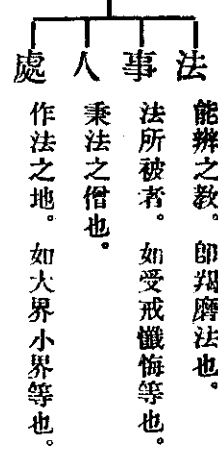 法 能辨之教。即羯磨法也。
事 法所被者。如受戒懺悔等也。
人 秉法之僧也。
處 作法之地。如大界小界等也。